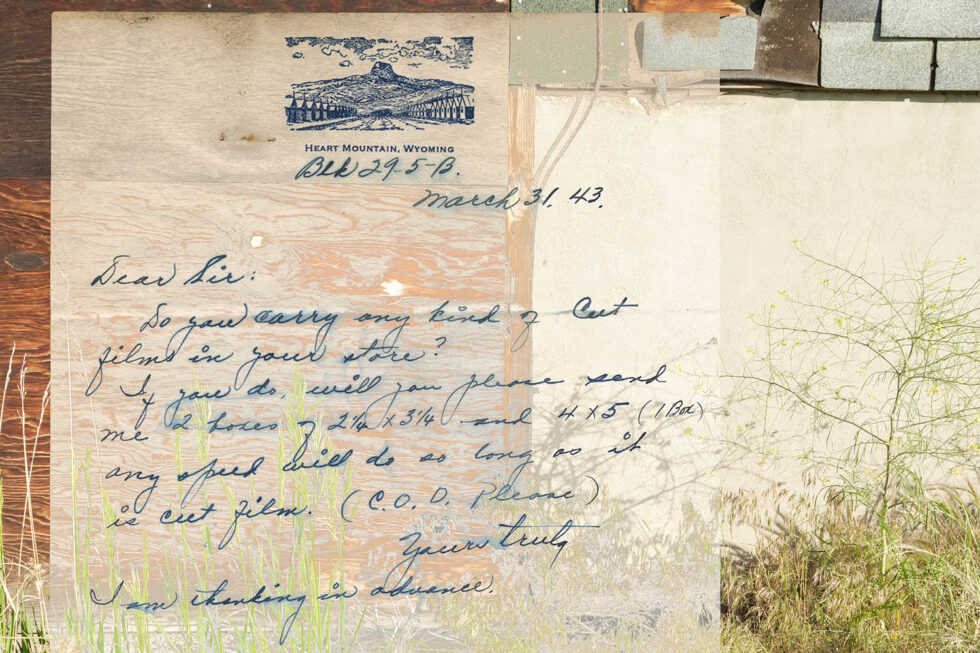 HEART MOUNTAIN, WYOMING
Blk 29-5-B.
March 31, 43.
Dear Sir:
Do you carry any kind of Cut
films in your store?
If you do, will you please send
me 2 boxes of 2¼ x 3¼ and 4 x 5 (1 Box)
any speed will do so long as it
is cut film. (C.O.D. Please)
Yours truly
I am thanking in advance.